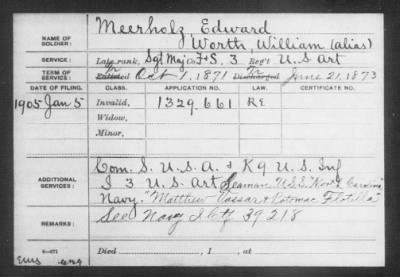 Meerholz, Edward
NAME OF SOLDIER: Worth, William (alias)
SERVICE: Late rank, Sgt Maj Co F+S, 3 Reg't U.S art
TERM OF SERVICE: Enlisted Oct 1, 1871 Discharged June 21, 1873
DATE OF FILING. CLASS. APPLICATION NO. LAW. CERTIFICATE NO.
1905 Jan 5 Invalid, 1329661 RE
Widow,
Minor,
Com. S. U.S.A. + K 9 U.S. Inf
ADDITIONAL SERVICES: I 3 U.S. art Seaman U.S.S. "North Carolina"
Navy. "Matthew Vassar & Potomac Flotilla"
REMARKS: See Navy I Ctf 39218
Died , 1 , at